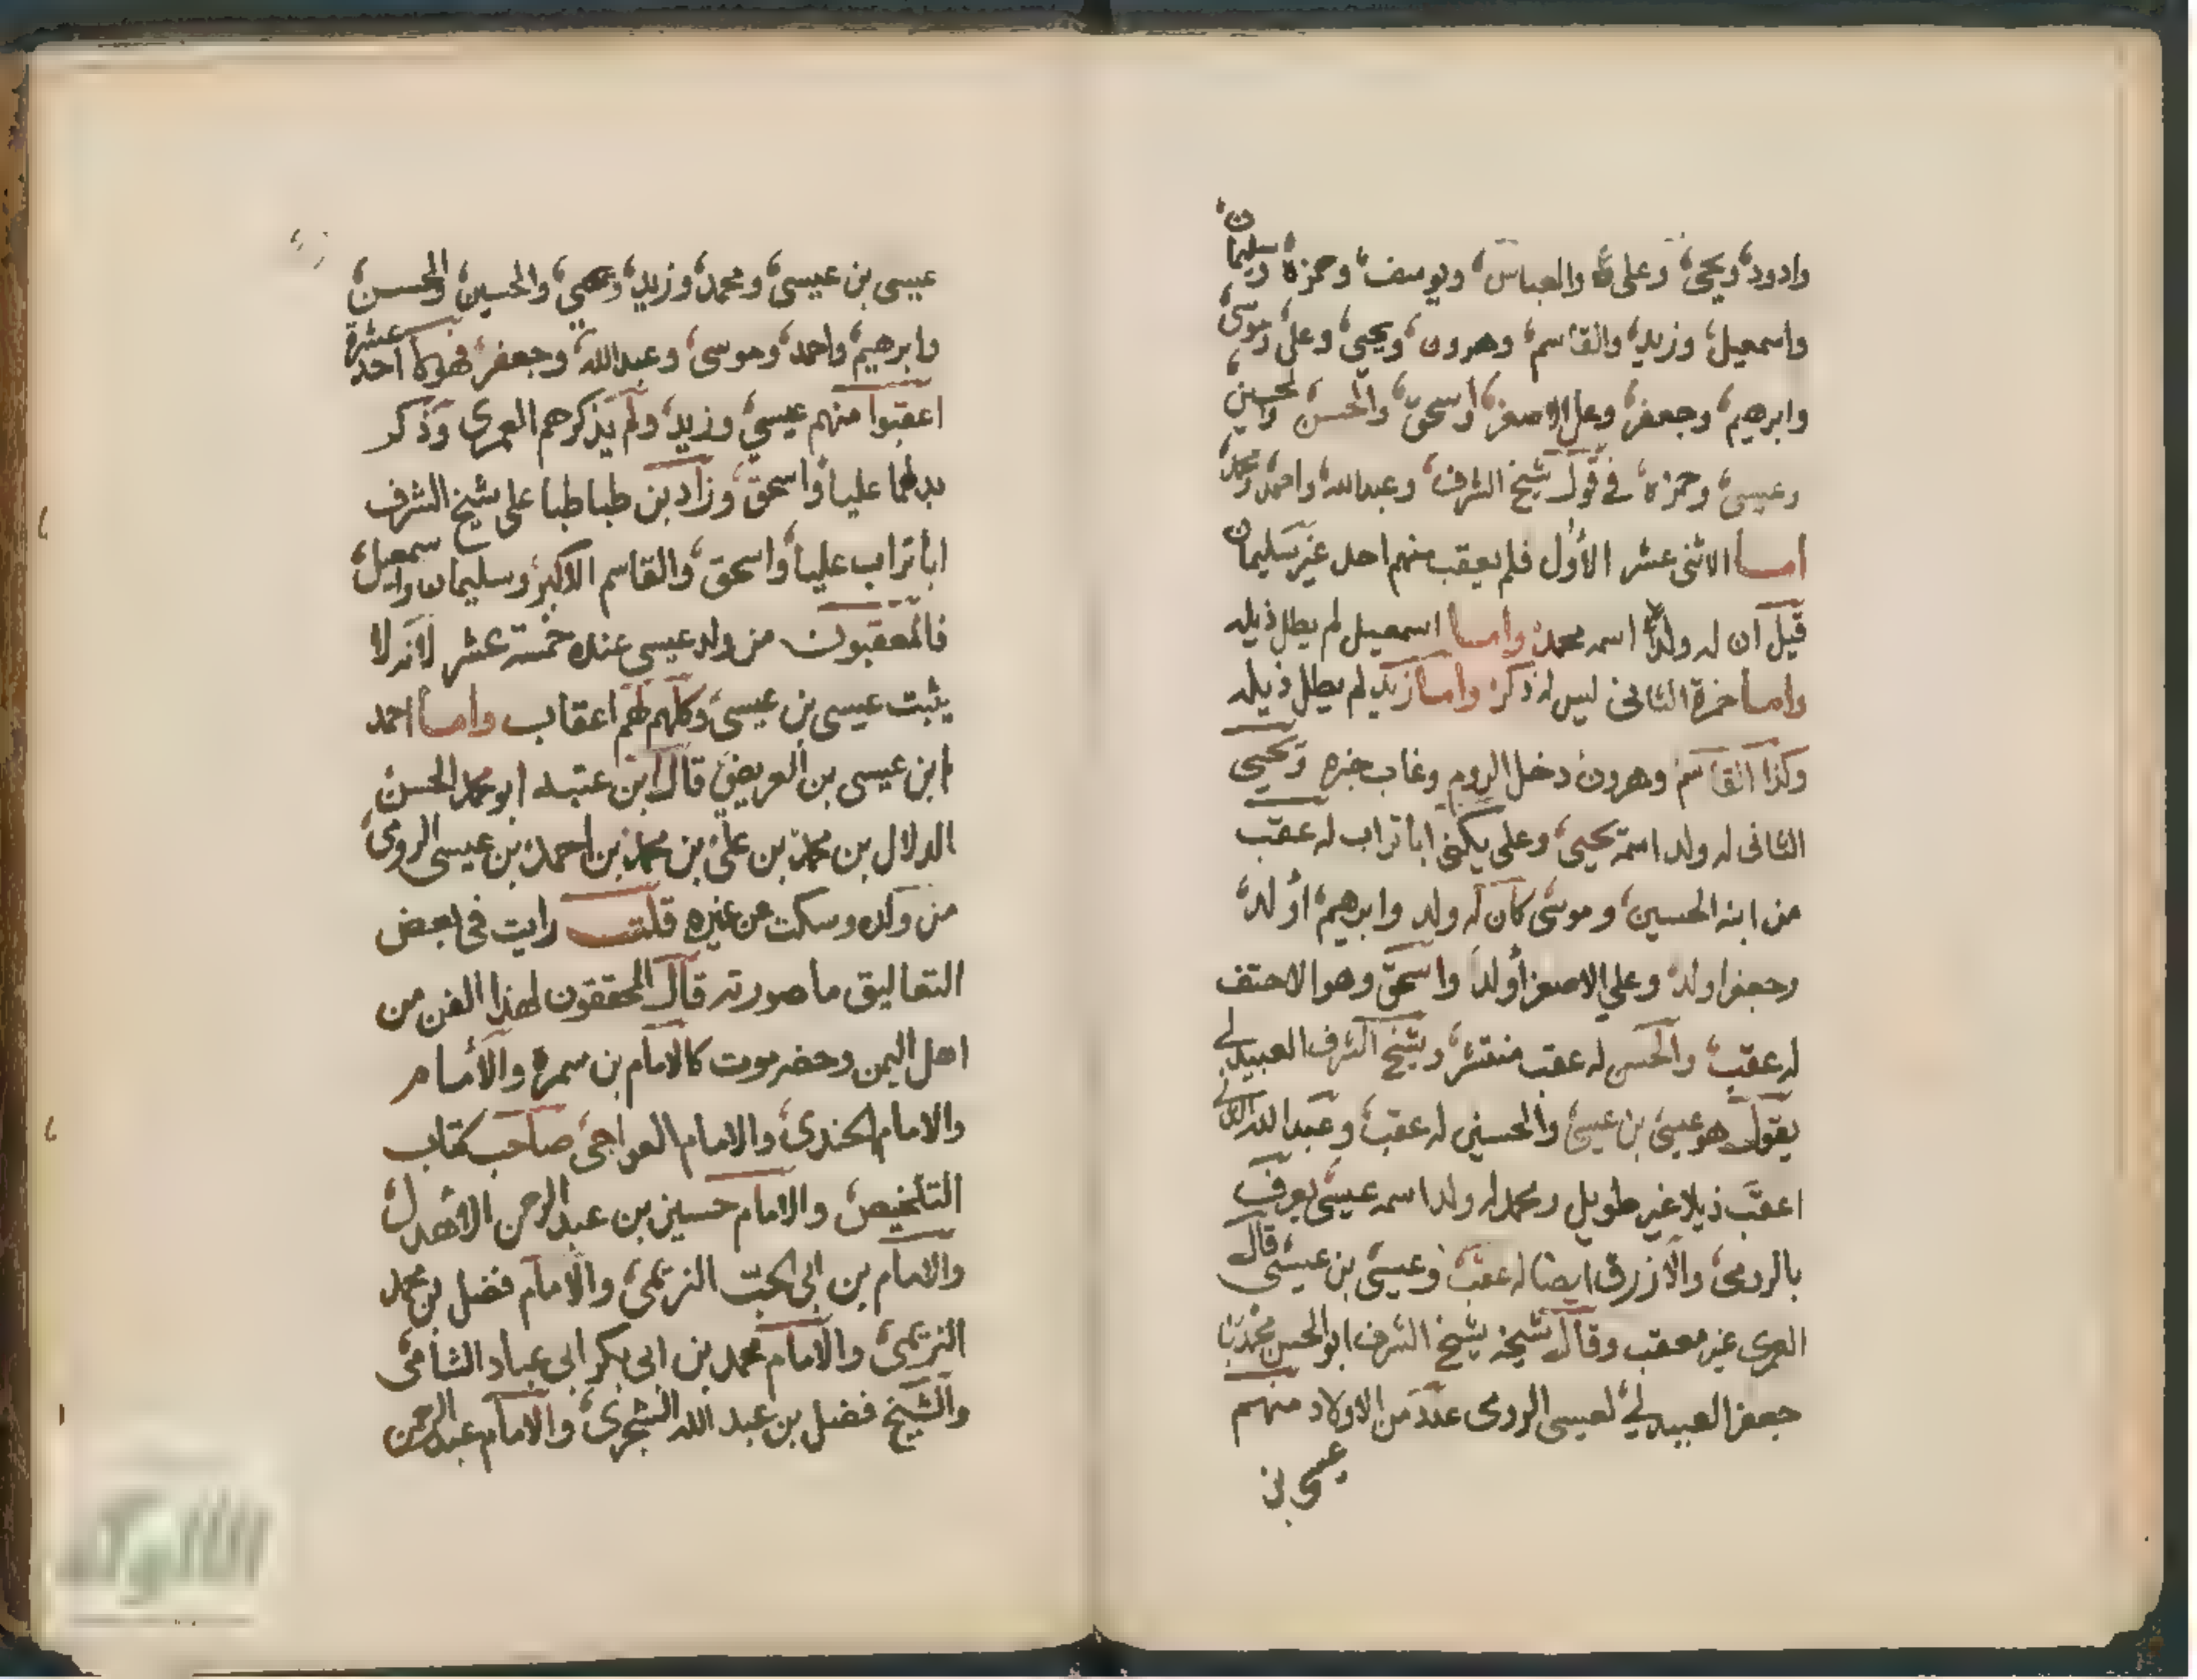 وادود ويحيى وعلى والعباس ويوسف وحمزه وسليمان
واسمعيل وزيد والقاسم وهرون ويحيى وعلى وموسى
وابرهيم وجعفر وعلى الاصغر واسحق والحسن والحسين
وعيسى وحمزه فى قول شيخ الشرف وعبد الله واحمد ومحمد
اما الاثنى عشر الأول فلم يعقب منهم احد غير سليمان
قيل ان له ولدا اسمه محمد واما اسمعيل لم يطل ذيله
واما حمزة الثانى ليس له ذكر واما زيد لم يطل ذيله
وكذا القاسم وهرون دخل الروم وغاب خبره ويحيى
الثانى له ولد اسمه يحيى وعلى يكنى ابا تراب له عقب
من ابنه الحسين وموسى كان له ولد وابرهيم أولد
وجعفر اولد وعلى الاصغر أولد واسحق وهو الاحنف
له عقب والحسن له عقب منتشر وشيخ الشرف العبيدلى
يقول هو عيسى بن عيسى والحسين له عقب وعبد الله
اعقب ذيلا غير طويل ومحمد له ولد اسمه عيسى يعرف
بالرومى والازرق ايضا له عقب وعيسى بن عيسى قال
العمرى غير معقب وقال شيخه شيخ الشرف ابو الحسن محمد بن
جعفر العبيدلى لعيسى الرومى عدد من الاولاد منهم
عيسى بن
عيسى بن عيسى ومحمد وزيد ويحيى والحسين والحسن
وابرهيم واحمد وموسى وعبد الله وجعفر فهوكا احد عشرة
اعقبوا منهم عيسى وزيد ولم يذكرهم العمرى وذكر
بدلهما عليا واسحق وزاد بن طباطبا على شيخ الشرف
ابا تراب عليا واسحق والقاسم الاكبر وسليمان واسمعيل
فالمعقبون من ولد عيسى عنده خمسة عشر لانه لا
يثبت عيسى بن عيسى وكلهم لهم اعقاب واما احمد
ابن عيسى بن العريضى قال ابن عتبه ابو محمد الحسن
الدلال بن محمد بن على بن محمد بن احمد بن عيسى الرومى
من ولده وسكت عن غيره قلت رايت فى بعض
التعاليق ما صورته قال المحققون لهذا الفن من
اهل اليمن وحضرموت كالامام بن سمرة والأمام
والامام الجندى والامام العواجى صاحب كتاب
التلخيص والامام حسين بن عبد الرحمن الاهدل
والامام بن ابى الحب التريمى والامام فضل بن محمد
التريمى والامام محمد بن ابى بكر ابى عباد الشامى
والشيخ فضل بن عبد الله الشجرى والامام عبد الرحمن
الألوكة